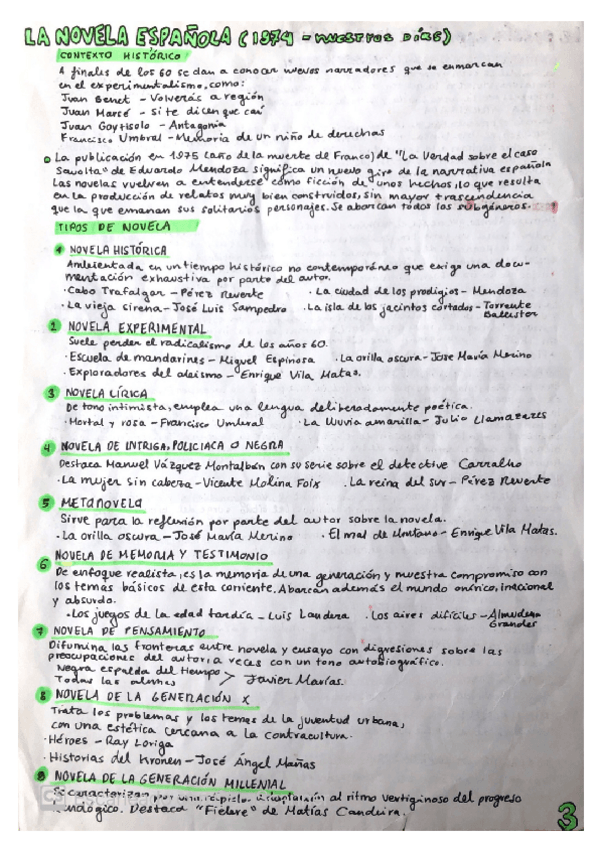 LA NOVELA ESPAÑOLA (1974 - NUESTROS DÍAS)
CONTEXTO HISTÓRICO
A finales de los 60 se dan a conocer nuevos narradores que se enmarcan
en el experimentalismo, como:
Juan Benet - Volverás a región
Juan Marsé - Si te dicen que caí
Juan Goytisolo - Antagonía
Francisco Umbral - Memoria de un niño de derechas
La publicación en 1975 (año de la muerte de Franco) de "La Verdad sobre el caso
Savolta" de Eduardo Mendoza significa un nuevo giro de la narrativa española
Las novelas vuelven a entenderse como ficción de unos hechos, lo que resulta
en la producción de relatos muy bien construidos, sin mayor trascendencia
que la que emanan sus solitarios personajes. Se abarcan todos los subgéneros.
TIPOS DE NOVELA
1 NOVELA HISTÓRICA
Ambientada en un tiempo histórico no contemporáneo que exige una docu-
mentación exhaustiva por parte del autor.
· Cabo Trafalgar - Pérez Reverte · La ciudad de los prodigios - Mendoza
· La vieja sirena - José Luis Sampedro · La isla de los jacintos cortados - Torrente
Ballester
2 NOVELA EXPERIMENTAL
Suele perder el radicalismo de los años 60.
· Escuela de mandarines - Miguel Espinosa · La orilla oscura - Jose María Merino
· Exploradores del abismo - Enrique Vila Matas.
3 NOVELA LÍRICA
De tono intimista, emplea una lengua deliberadamente poética.
· Mortal y rosa - Francisco Umbral · La lluvia amarilla - Julio Llamazares
4 NOVELA DE INTRIGA, POLICIACA O NEGRA
Destaca Manuel Vázquez Montalbán con su serie sobre el detective Carvalho
· La mujer sin cabeza - Vicente Molina Foix · La reina del sur - Pérez Reverte
5 METANOVELA
Sirve para la reflexión por parte del autor sobre la novela.
· La orilla oscura - José María Merino · El mal de Montano - Enrique Vila Matas.
6 NOVELA DE MEMORIA Y TESTIMONIO
De enfoque realista, es la memoria de una generación y muestra compromiso con
los temas básicos de esta corriente. Abarcan además el mundo onírico, irracional
y absurdo.
· Los juegos de la edad tardía - Luis Landera · Los aires difíciles - Almudena
Grandes
7 NOVELA DE PENSAMIENTO
Difumina las fronteras entre novela y ensayo con digresiones sobre las
preocupaciones del autor, a veces con un tono autobiográfico.
Negra espalda del tiempo
Todas las almas > Javier Marías.
8 NOVELA DE LA GENERACIÓN X
Trata los problemas y los temas de la juventud urbana,
con una estética cercana a la contracultura.
· Héroes - Ray Loriga
· Historias del Kronen - José Ángel Mañas
NOVELA DE LA GENERACIÓN MILLENIAL
Se caracterizan por una rápida al ritmo vertiginoso del progreso
tecnológico. Destaca "Fiebre" de Matías Candeira.
3